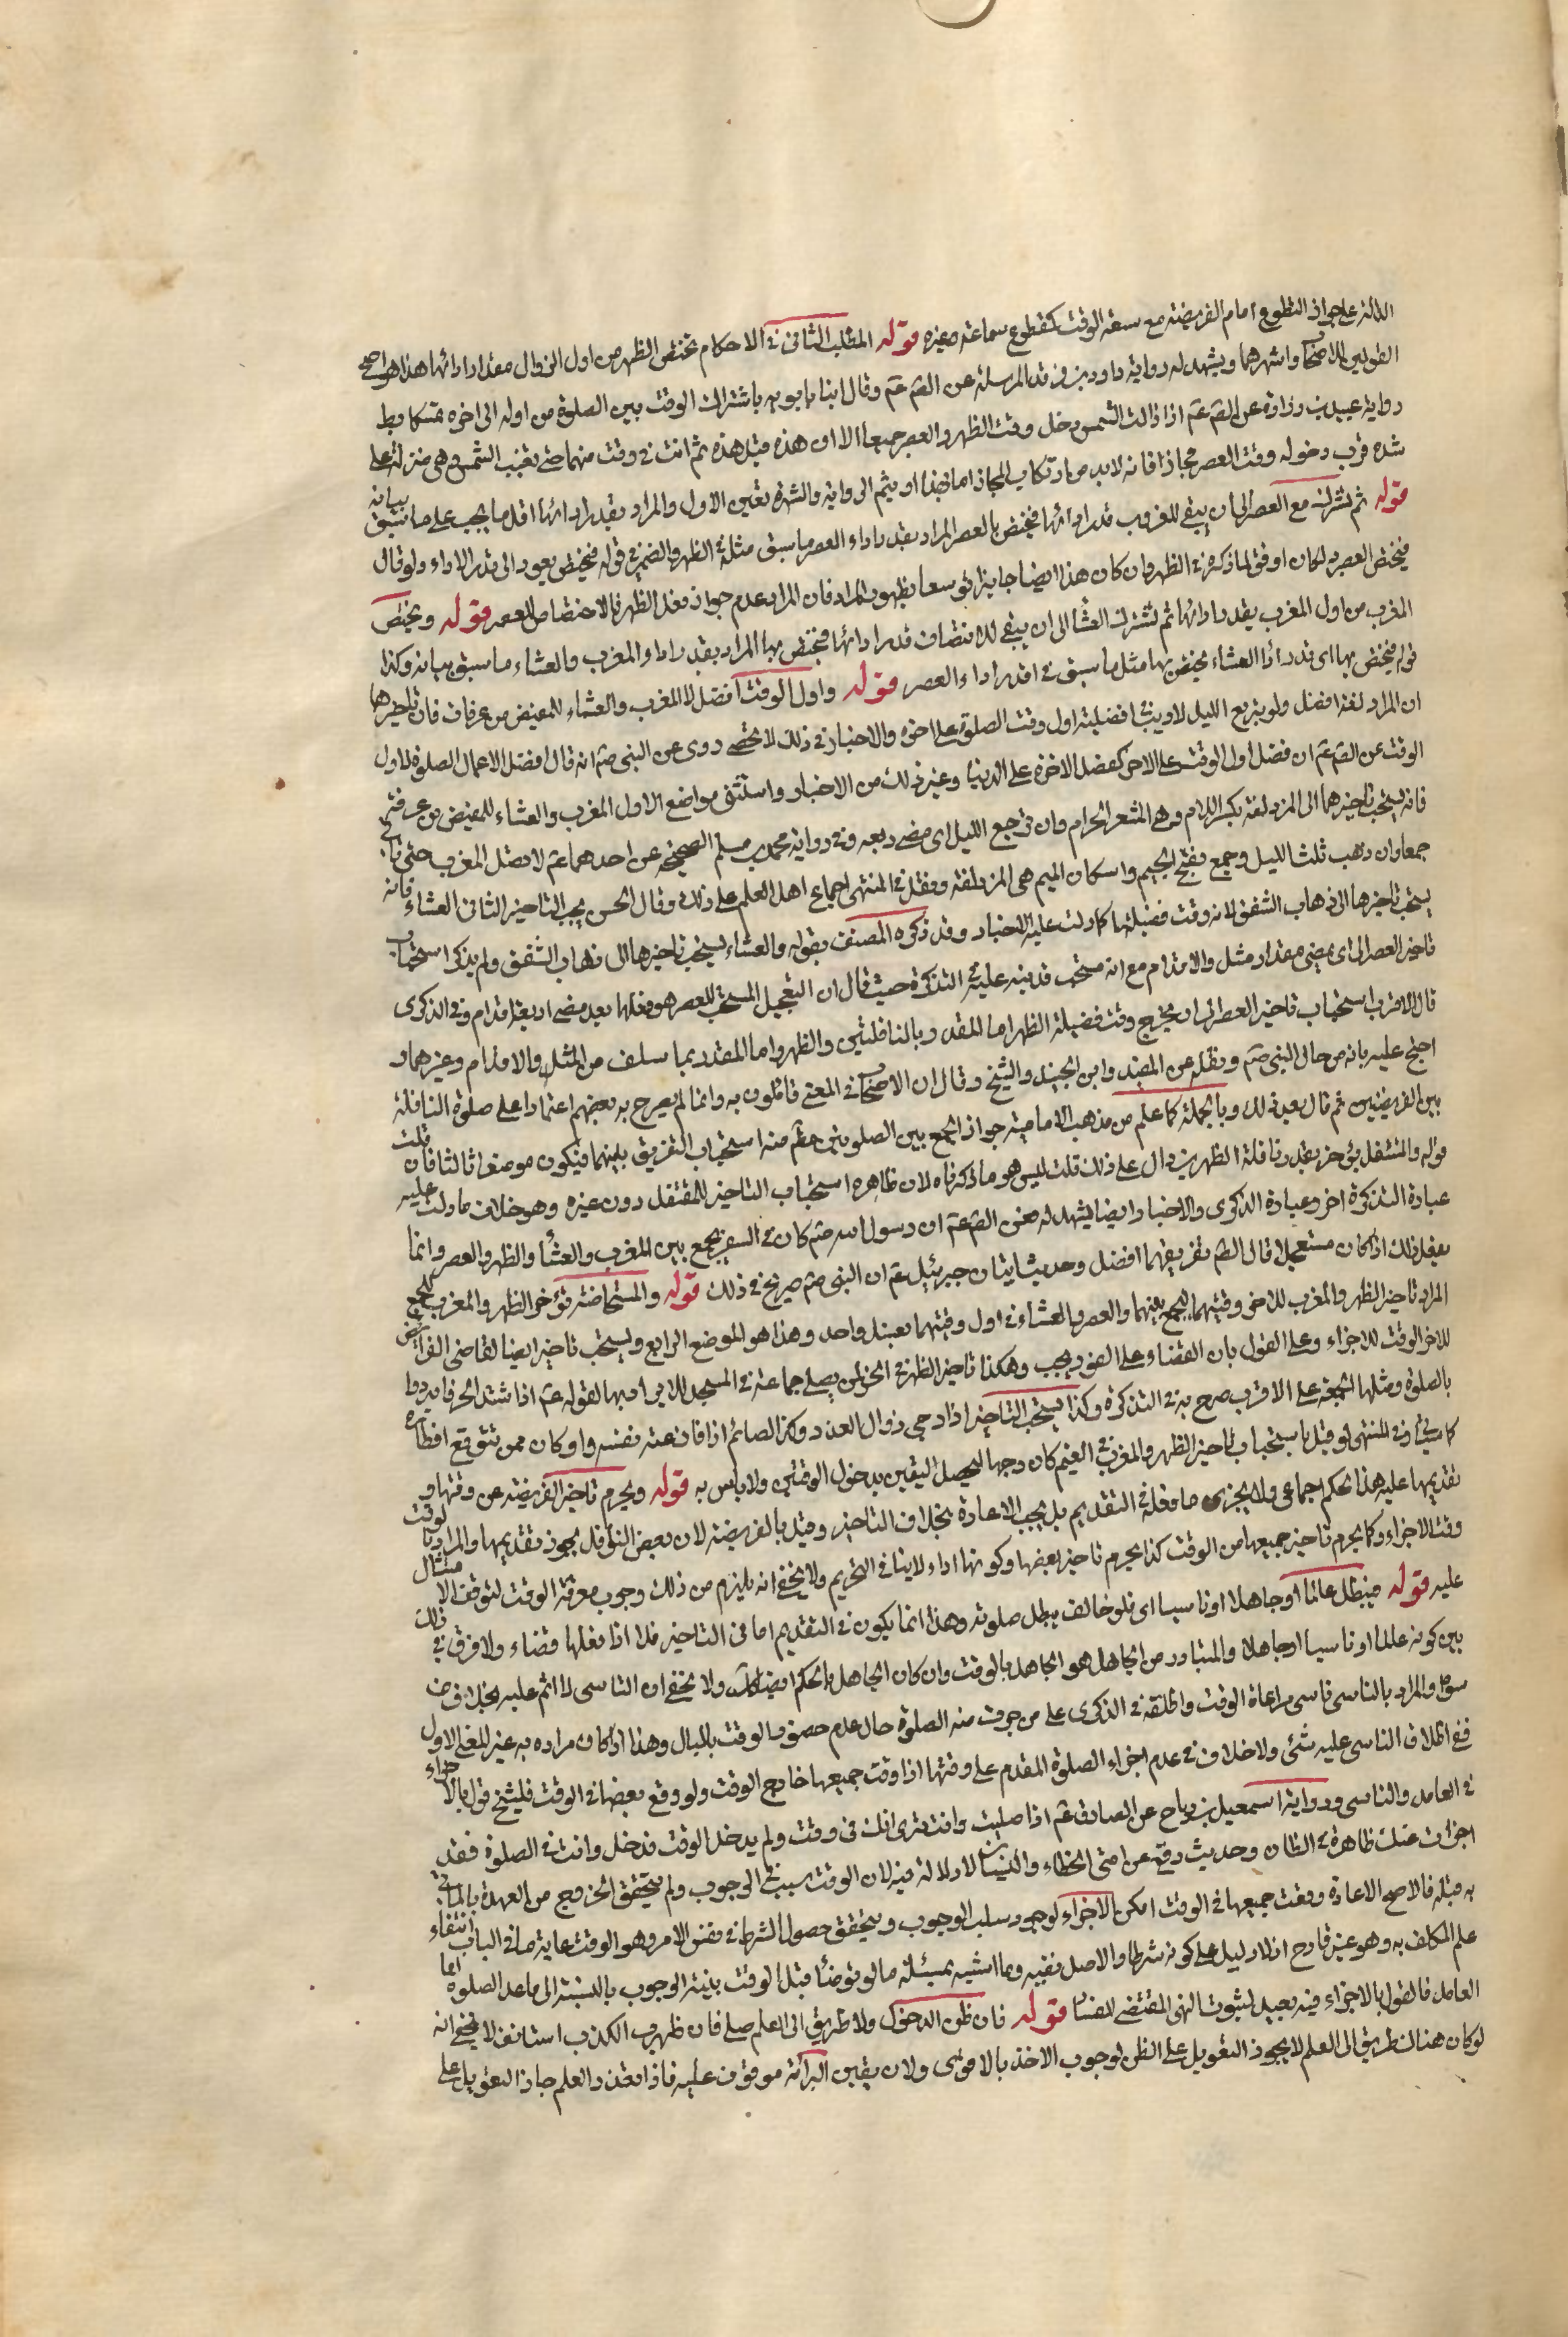 الدالة على جواز التطوع امام الفريضة مع سعة الوقت كمقطوع سماعة وغيره قوله المطلب الثانى فى الاحكام تختص الظهر من اول الزوال بمقدار ادائها هذا هو اصح
القولين للاصحاب واشهرهما ويشهد له رواية داود بن فرقد المرسلة عن الصّ عم وقال ابنا بابويه باشتراك الوقت بين الصلوة من اوله الى اخره تمسكا بظ
رواية عبيد بن زرارة عن الصّ عم اذا زالت الشمس دخل وقت الظهر والعصر جميعا الا ان هذه قبل هذه ثم انت فى وقت منهما حتى تغيب الشمس وهى منزلة على
شدة قرب دخوله وقت العصر مجازا فانه لابد من ارتكاب المجاز اما فيه او فى ثم الرواية والشهرة تعين الاول والمراد بقدر ادائها اقل ما يجب على ما سبق بيانه
قوله ثم تشترك مع العصر الى ان يبقى للغروب قدر ادائها فتختص بالعصر المراد بقدر اداء العصر ما سبق مثله فى الظهر والضمير فى قوله فيختص يعود الى قدر الاداء ولو قال
فيختص العصر به لكان اوفق لما ذكره فى الظهر وان كان هذا ايضا جايزا توسعا لظهور المراد فان المراد عدم جواز فعل الظهر فالاختصاص للعصر قوله وتختص
المغرب من اول المغرب بقدر ادائها ثم تشترك العشا الى ان يبقى للانتصاف قدر ادائها فتختص بها المراد بقدر اداء المغرب والعشاء ما سبق بيانه وكذا
فى فيختص بها اى قدر ادا العشاء يختص بها مثل ما سبق فى اقدر اداء العصر قوله واول الوقت افضل الا المغرب والعشاء للمفيض من عرفات فان تاخيرها
ان المزدلفة افضل ولو بتربع الليل لا ريب فى افضلية اول وقت الصلوة على اخره والاخبار فى ذلك لا تحصى روى عن النبى صم انه قال افضل الاعمال الصلوة لاول
الوقت عن الصّ عم ان فضل اول الوقت على الاخر كفضل الاخرة على الدنيا وغير ذلك من الاخبار واستثنى مواضع الاول المغرب والعشاء للمفيض من عرفة
فانه يستحب تاخيرهما الى المزدلفة بكسر اللام وهى المشعر الحرام وان تربع الليل اى مضى ربعه وفى رواية محمد بن مسلم الصحيحة عن احدهما عم لا تصل المغرب حتى تاتى
جمعا وان ذهب ثلث الليل وجمع بفتح الجيم واسكان الميم هى المزدلفة ونقل فى المنتهى اجماع اهل العلم على ذلك وقال الحسن يجب التاخير الثانى العشاء فانه
يستحب تاخيرها الى ذهاب الشفق لانه وقت فضيلتها كما دلت عليه الاخبار وقد ذكره المصنف بقوله والعشاء يستحب تاخيرها الى ذهاب الشفق ولم يذكر استحباب
تاخير العصر الى اى يمضى مقدار مثل والاقدام مع انه مستحب قد نبه عليه فى التذكرة حيث قال ان التعجيل المستحب للعصر هو فعلها بعد مضى اربعة اقدام وفى الذكرى
قال الاقرب استحباب تاخير العصر الى ان يخرج وقت فضيلة الظهر اما المقدر بالنافلتين والظهر واما المقدر بما سلف من المثل والاقدام وغيرهما و
احتج عليه بانه من حال النبى صم ونقله عن المفيد وابن الجنيد والشيخ وقال ان الاصحاب فى المعنى قائلون به وانما لم يصرح به بعضهم اعتمادا على صلوة النافلة
بين الفريضتين ثم قال بعد ذلك وبالجملة كما علم من مذهب الامامية جواز الجمع بين الصلوتين علم منه استحباب التفريق بينهما فيكون موضعا ثالثا فان قلت
قوله والمتنفل يؤخر بقدر نافلة الظهرين دال على ذلك قلت ليس هو ما ذكرناه لان ظاهره استحباب التاخير للمتنفل دون غيره وهو خلاف ما دلت عليه
عبارة التذكرة اخر وعبارة الذكرى والاخبار وايضا يشهد له عن الصّ عم ان رسول الله صم كان فى السفر يجمع بين المغرب والعشا والظهر والعصر وانما
يفعل ذلك اذا كان مستعجلا قال الصّ تفريقهما افضل وحديث اتيان جبرئيل عم ان النبى صم صريح فى ذلك قوله والمستحاضة تؤخر الظهر والمغرب للجمع
المراد تاخير الظهر والمغرب للاخر وقتيهما للجمع بينهما والعصر والعشاء فى اول وقتيهما بغسل واحد وهذا هو الموضع الرابع ويستحب تاخير ايضا لقاضى الفرائض
للاخر الوقت للاجزاء وعلى القول بان القضاء على الفور يجب وهكذا تاخير الظهر فى الحر لمن يصلى جماعة فى المسجد للابراد بها لقوله عم اذا اشتد الحر فابردوا
بالصلوة ومثلها الجمعة على الاقرب صرح به فى التذكرة وكذا يستحب التاخير اذا رجى زوال العذر وكذا الصائم اذا فاز عنه نفسه او كان ممن يتوقع افطاره
كما سياتى وفى المنتهى لو قيل باستحباب تاخير الظهر والمغرب فى الغيم كان وجها ليحصل اليقين بدخول الوقتين ولا باس به قوله ويحرم تاخير الفريضة عن وقتها و
تقديمها عليه هذا الحكم اجماعى ولا يجزى ما فعله فى التقديم بل يجب الاعادة بخلاف التاخير وقيل بالفريضة لان بعض النوافل يجوز تقديمها والمراد بالوقت
وقت الاجزاء وكما يحرم تاخير جميعها من الوقت كذا يحرم تاخير بعضها وكونها اداء لا ينافى التحريم ولا يخفى انه يلزم من ذلك وجوب معرفة الوقت لتوقف الامتثال
عليه قوله فتبطل عالما او جاهلا او ناسيا اى فلو خالف بطل صلوته وهذا انما يكون فى التقديم اما فى التاخير فلا اذا فعلها قضاء ولا فرق فى ذلك
بين كونه عالما او ناسيا او جاهلا والمتبادر من الجاهل هو الجاهل بالوقت وان كان الجاهل بالحكم ايضا كك ولا يخفى ان الناسى لا اثم عليه بخلاف من
سواه والمراد بالناسى ناسى مراعاة الوقت واطلقه فى الذكرى على من جرت منه الصلوة حال عدم حضور الوقت بالبال وهذا اذا كان مراده به غير المعنى الاول
ففى اطلاق الناسى عليه شئ ولا خلاف فى عدم اجزاء الصلوة المقدم على وقتها اذا وقت جميعها خارج الوقت ولو وقع بعضها فى الوقت فللشيخ قول بالاجزاء
فى العامد والناسى ورواية اسمعيل بن رباح عن الصادق عم اذا صليت وانت ترى انك فى وقت ولم يدخل الوقت فدخل وانت فى الصلوة فقد
اجزات عنك ظاهرة فى الظان وحديث رفع عن امتى الخطاء والنسيان لا دلالة فيه لان الوقت سبب فى الوجوب ولم يتحقق الخروج من العهدة بالماتى
به قبله فالاصح الاعادة ووقعت جميعها فى الوقت امكن الاجزاء لوجود سبب الوجوب ويتحقق حصول الشرط فى نفس الامر وهو الوقت غاية ما فى الباب انتفاء
علم المكلف به وهو غير قادح اذ لا دليل على كونه شرطا والاصل نفيه وما اشبه بمسئلة ما لو توضئا قبل الوقت بنية الوجوب بالنسبة الى ما عد الصلوة اما
العامد فالقول بالاجزاء فيه بعيد لثبوت النهى المقتضى للفساد قوله فان ظن الدخول ولا طريق الى العلم صلى فان ظهر الكذب استانف لا يخفى انه
لو كان هناك طريق الى العلم لا يجوز التعويل على الظن لوجوب الاخذ بالاقوى ولان يقين البراءة موقوف عليه فاذا تعذر العلم جاز التعويل على